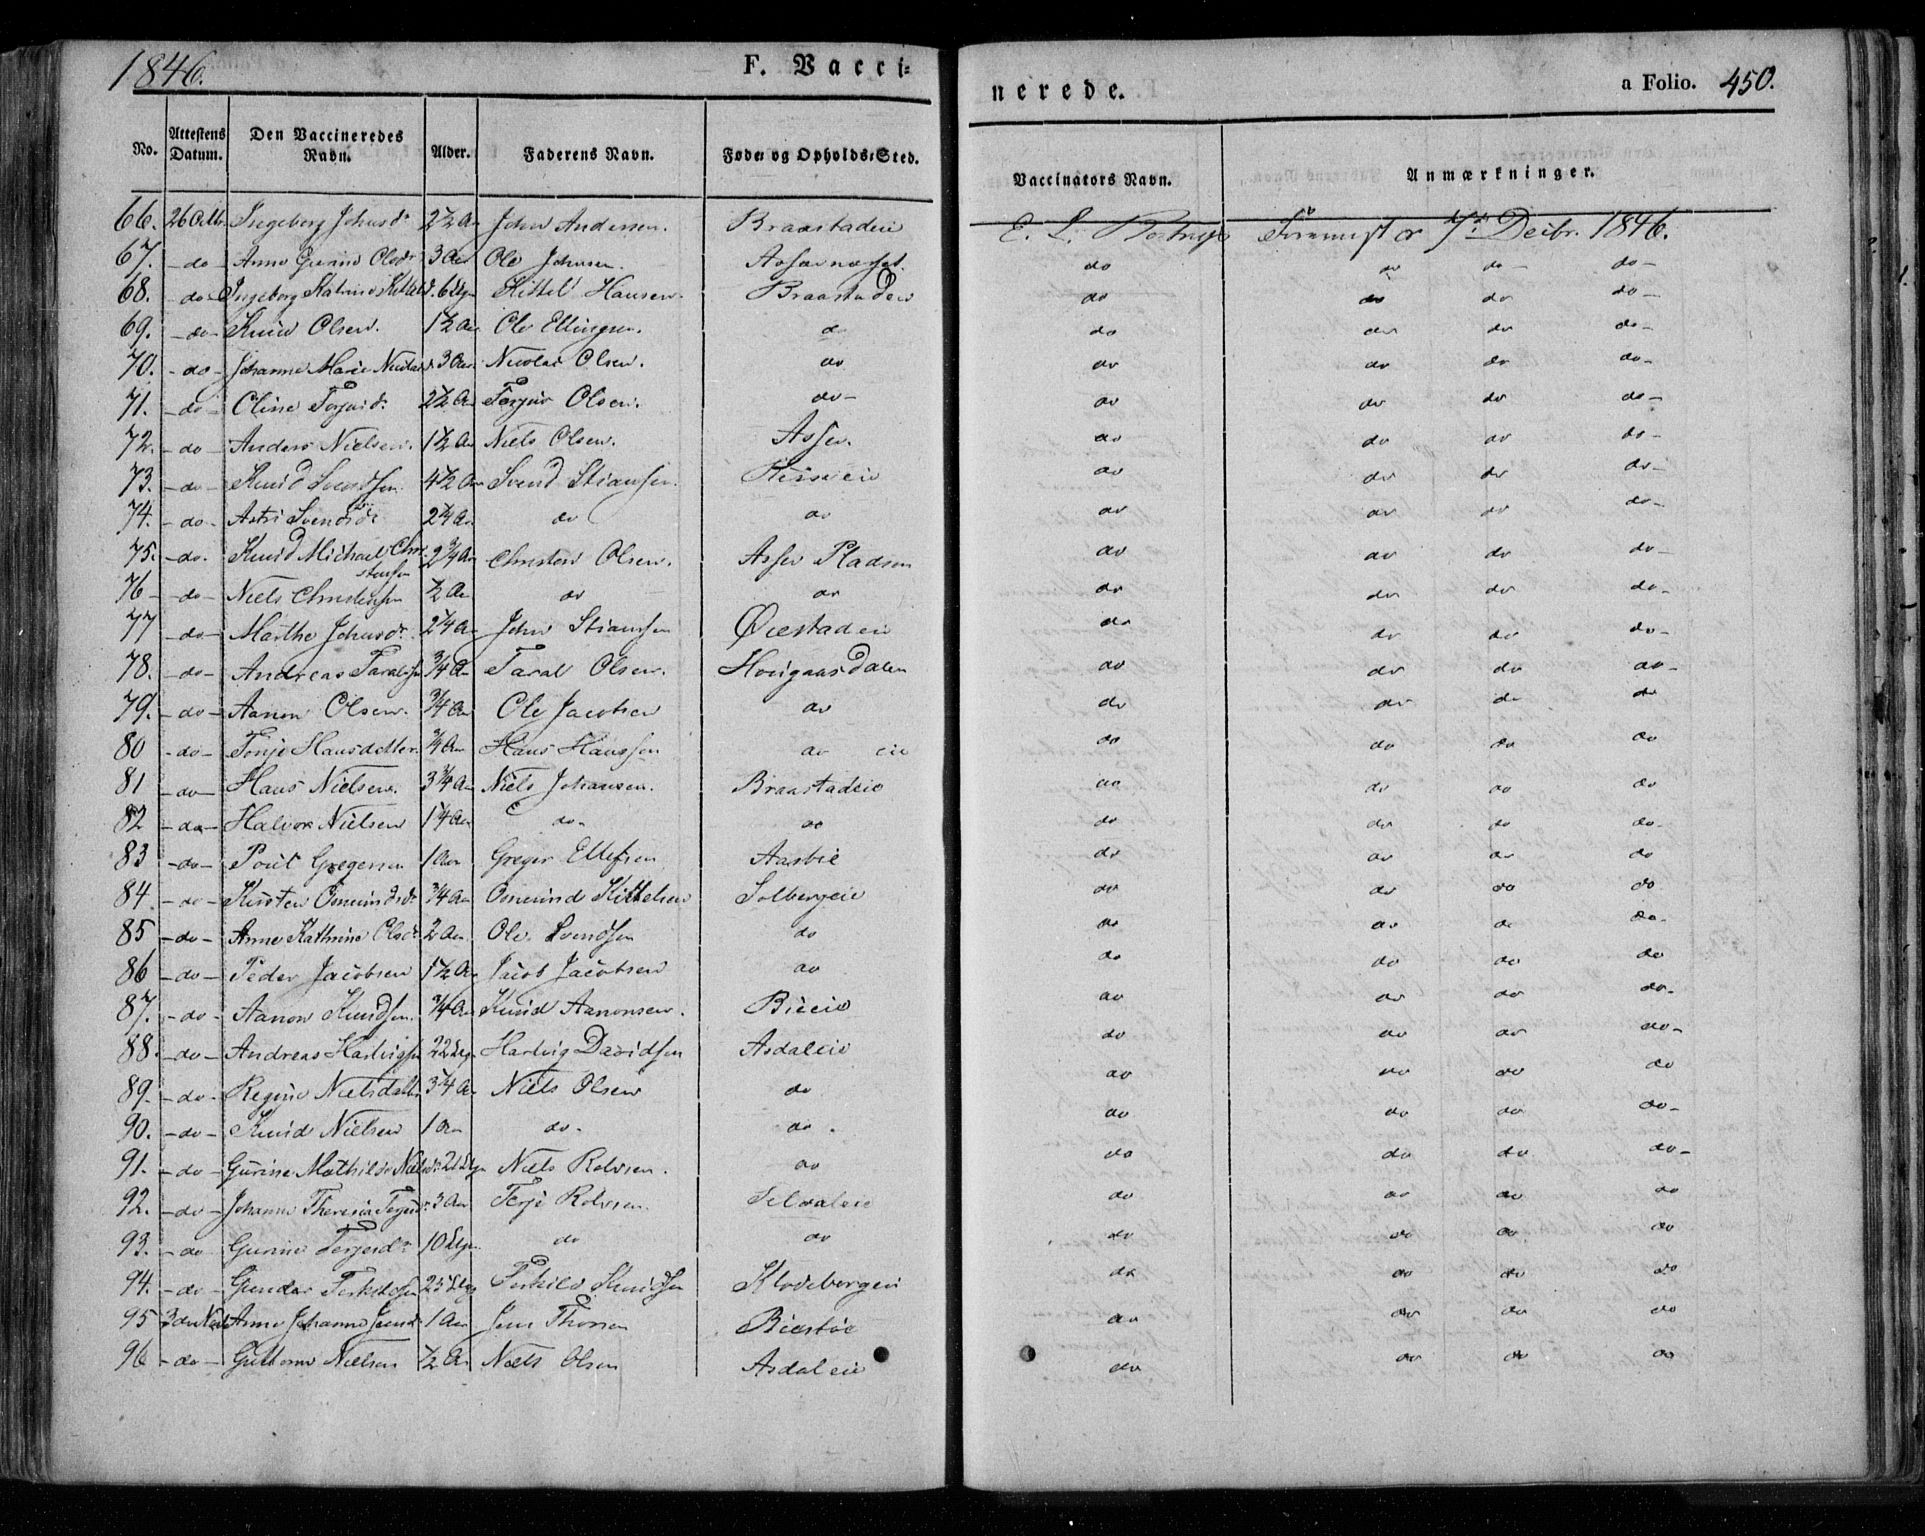 1846.
F. Vacci=
nerede.
a Folio. 450.
No. Attestens Datum. Den Vaccineredes Navn. Alder. Faderens Navn. Føde= og Opholds=Sted. Vaccinators Navn. Anmærkninger.
66. 26 Octbr Ingeborg Johnsdr 2½ Aar John Andersen. Braastadeie E. L. 7de Decbr. 1846.
67. -do- Anne Gurine Olsdr 3 Aar Ole Johnsen. do do do- do-
68. -do- Ingeborg Katrine Kittelsd. 6 Ugr Kittel Hansen. Braastadeie do do do do-
69. -do- Knud Olsen. 1½ Aar Ole Ellingsen. do do do do do-
70. -do- Johanne Marie Nicolaid. 3 Aar Nicolai Olsen. do do do do do-
71. -do- Oline Terjusdr 2½ Aar Terjus Olsen. do- do do do do-
72. -do- Anders Nielsen. 1½ Aar Niels Olsen. Asser. do do do do-
73. -do- Knud Svendsen 4½ Aar Svend Stiansen. do do do do-
74. -do- Astri Svendsdr 2¼ Aar do do do do do do-
75. -do. Knud Michael Chri-
stensen 2¾ Aar Christen Olsen. Asser Pladsen do do do do-
76- -do- Niels Christensen ½ Aar do do do do do do-
77 -do- Marthe Johnsdr. 2¼ Aar John Stiansen Øiestadeie do do do do-
78. -do- Andreas Taralsen ¾ Aar Taral Olsen. Hougaasdalen do do do do-
79. -do- Aanon Olsen. ¾ Aar Ole Jacobsen do do do do do
80 -do- Tonje Hansdatter. ¾ Aar Hans Hanssen do eie do do do do
81 -do- Hans Nielsen. 3¾ Aar Niels Johansen. Braastadeie do do do do
82 -do- Halvor Nielsen 1¼ Aar do- do do do do do-
83 -do- Poul Gregersen 1 Aar Greger Ellefsen Aasbie do do do do
84. -do- Kirsten Osmundsdr ¾ Aar Osmund Kittelsen Solbergeie do do do do
85 -do- Anne Kathrine Olsdr 2 Aar Ole Svendsen do do do do do-
86 -do- Peder Jacobsen 1½ Aar Jacob Jacobsen do do do do do
87. -do- Aanon Knudsen. ¾ Aar Knud Aanonsen. Bieeie do do do do-
88. -do- Andreas Hartvigsen 22 Ugr Hartvig Davidsen Asdaleie do do do do-
89. -do- Regine Nielsdatter 3¼ Aar Niels Olsen do do do do do
90. -do- Knud Nielsen 1 Aar do- do. do do do do-
91. -do- Gurine Mathilde Nielsdr 21 Ugr Niels Rolvsen. do do do do do-
92. -do- Johanne Theresia Terjesdr 3 Aar Terje Rolvsen. do do do do
93. -do Gunine Terjesdr 10 Ugr. do do do do do do
94. -do- Gunder Terkildsen 25 Ugr Terkild Knudsen Klodebergeie do do do do
95 3die Novbr Anne Johanne Jensdr 1 Aar Jens Thorsen do do do do
96 -do- Guttorm Nielsen ½ Aar Niels Olsen Asdaleie do do do do